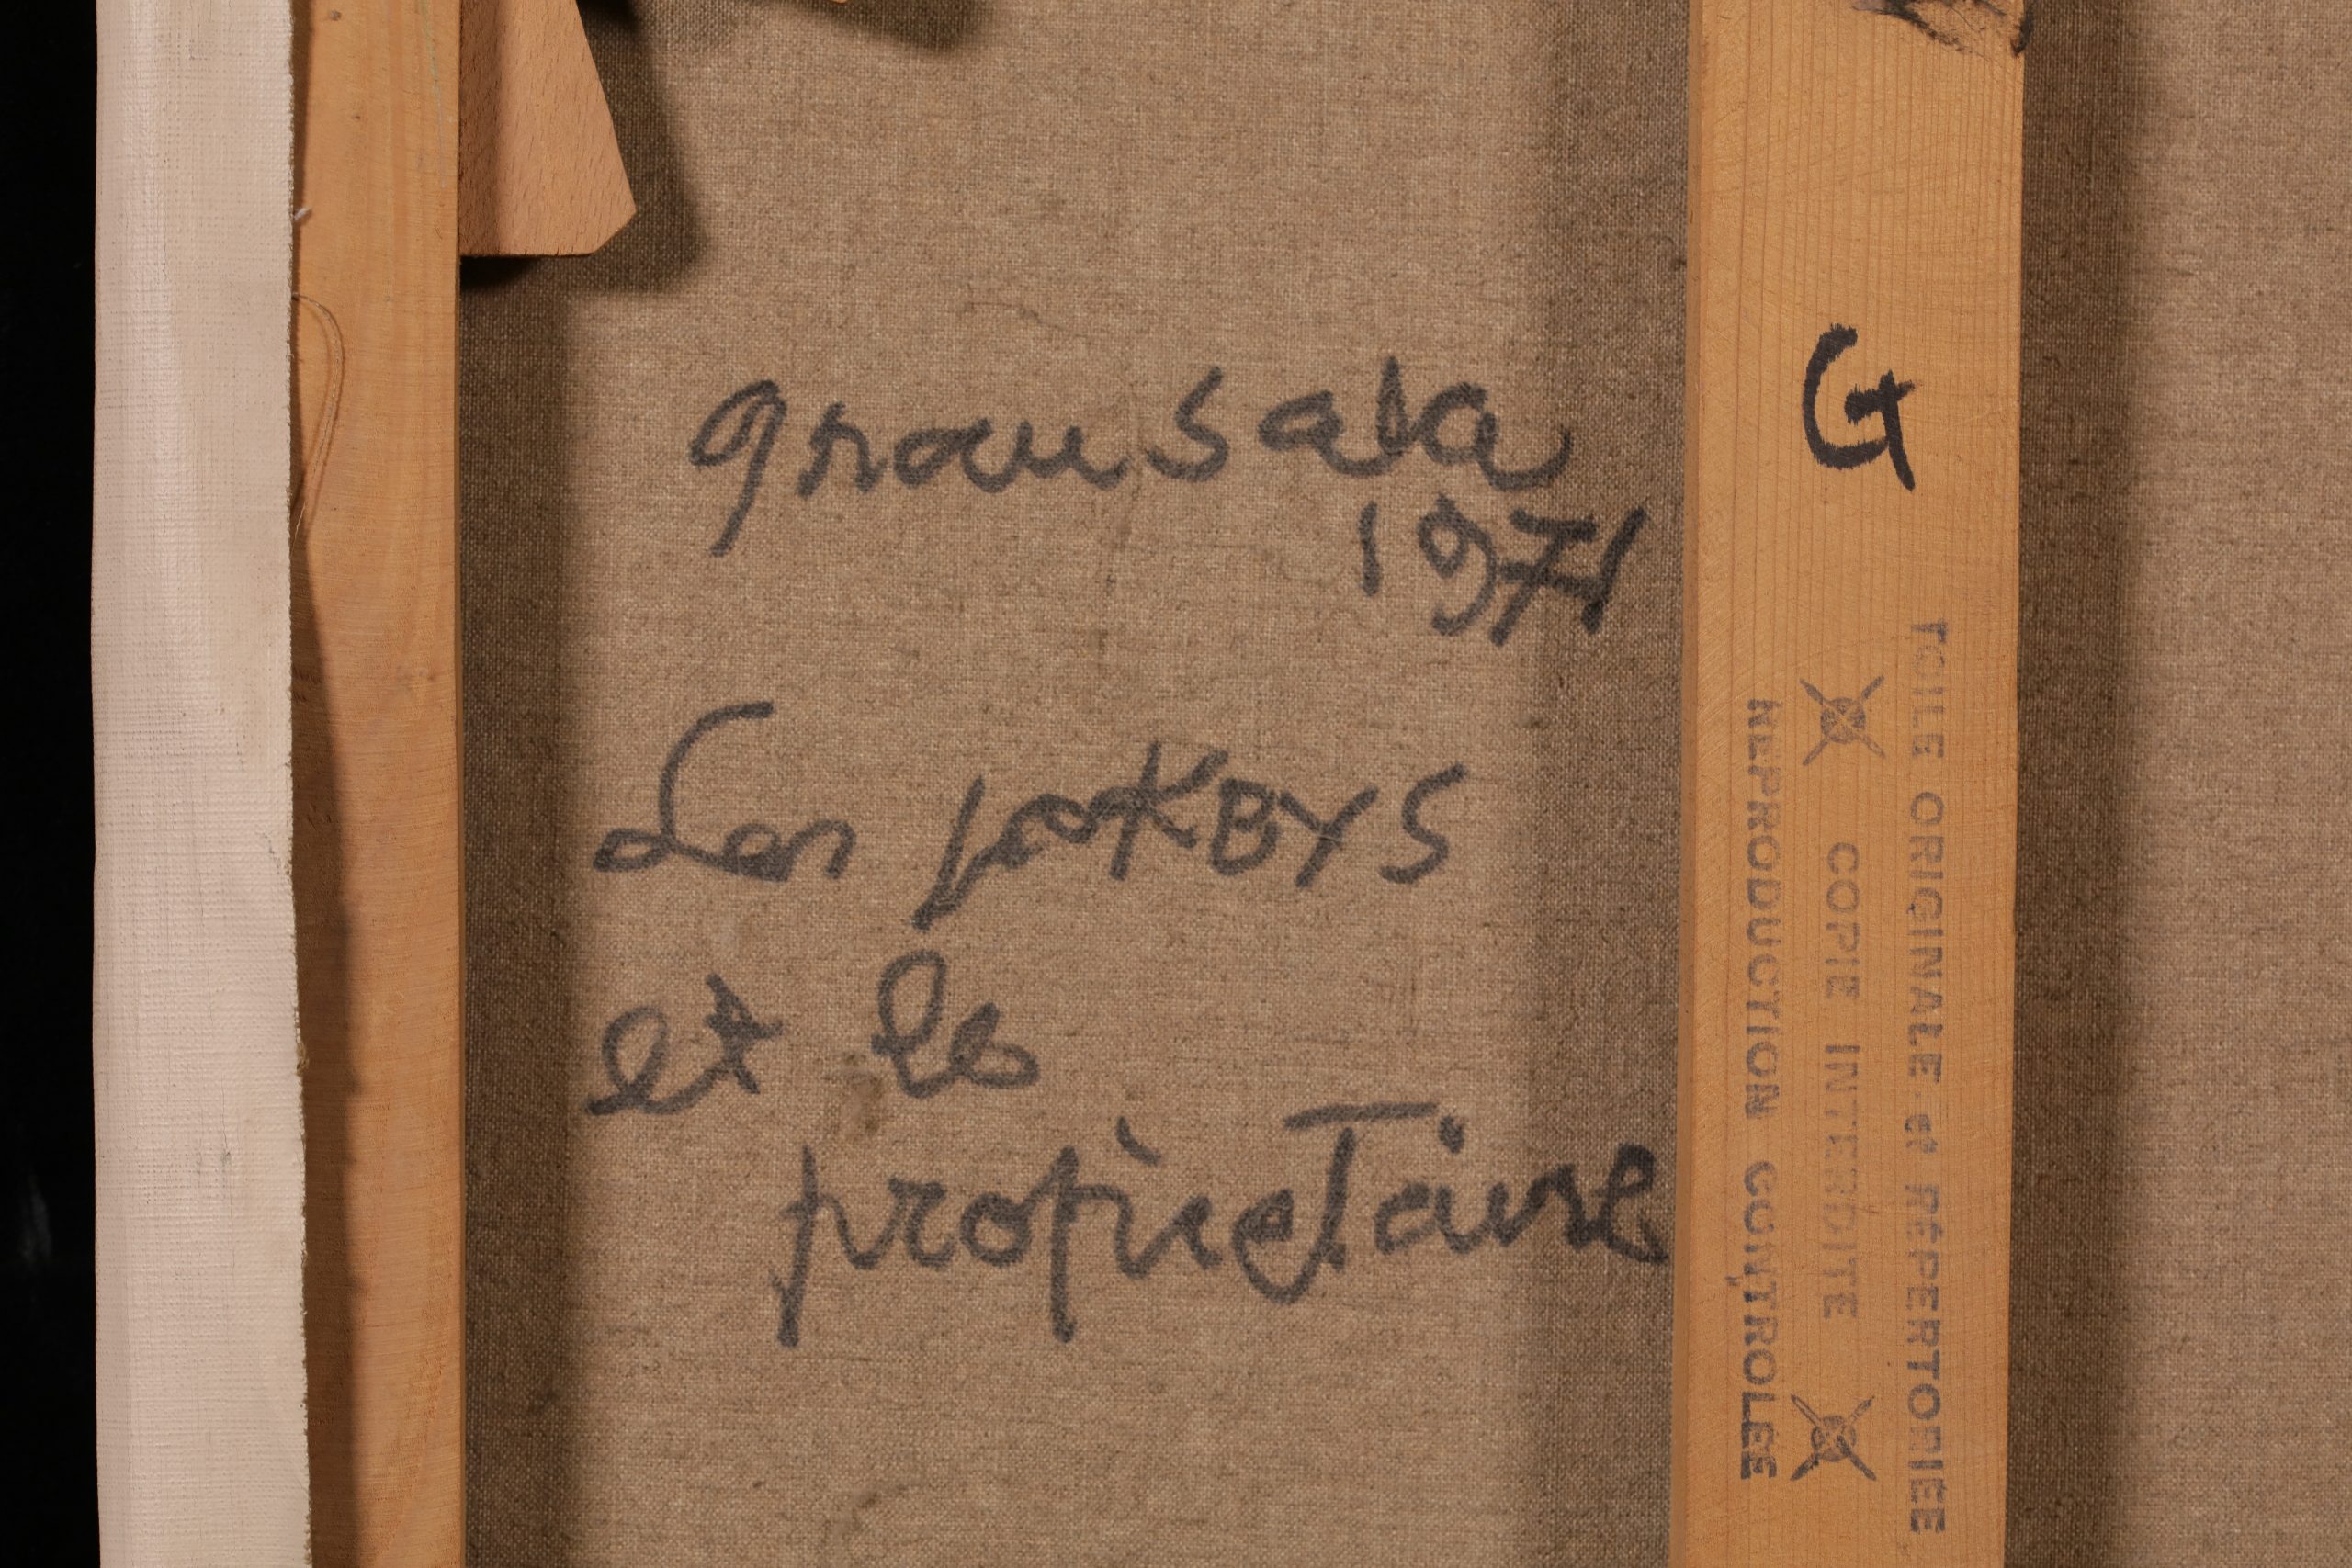 grau sala
1971
Les jockeys
et le
propietaire
G
TOILE ORIGINALE et RÉPERTORIEE
COPIE INTERDITE
REPRODUCTION CONTROLÉE